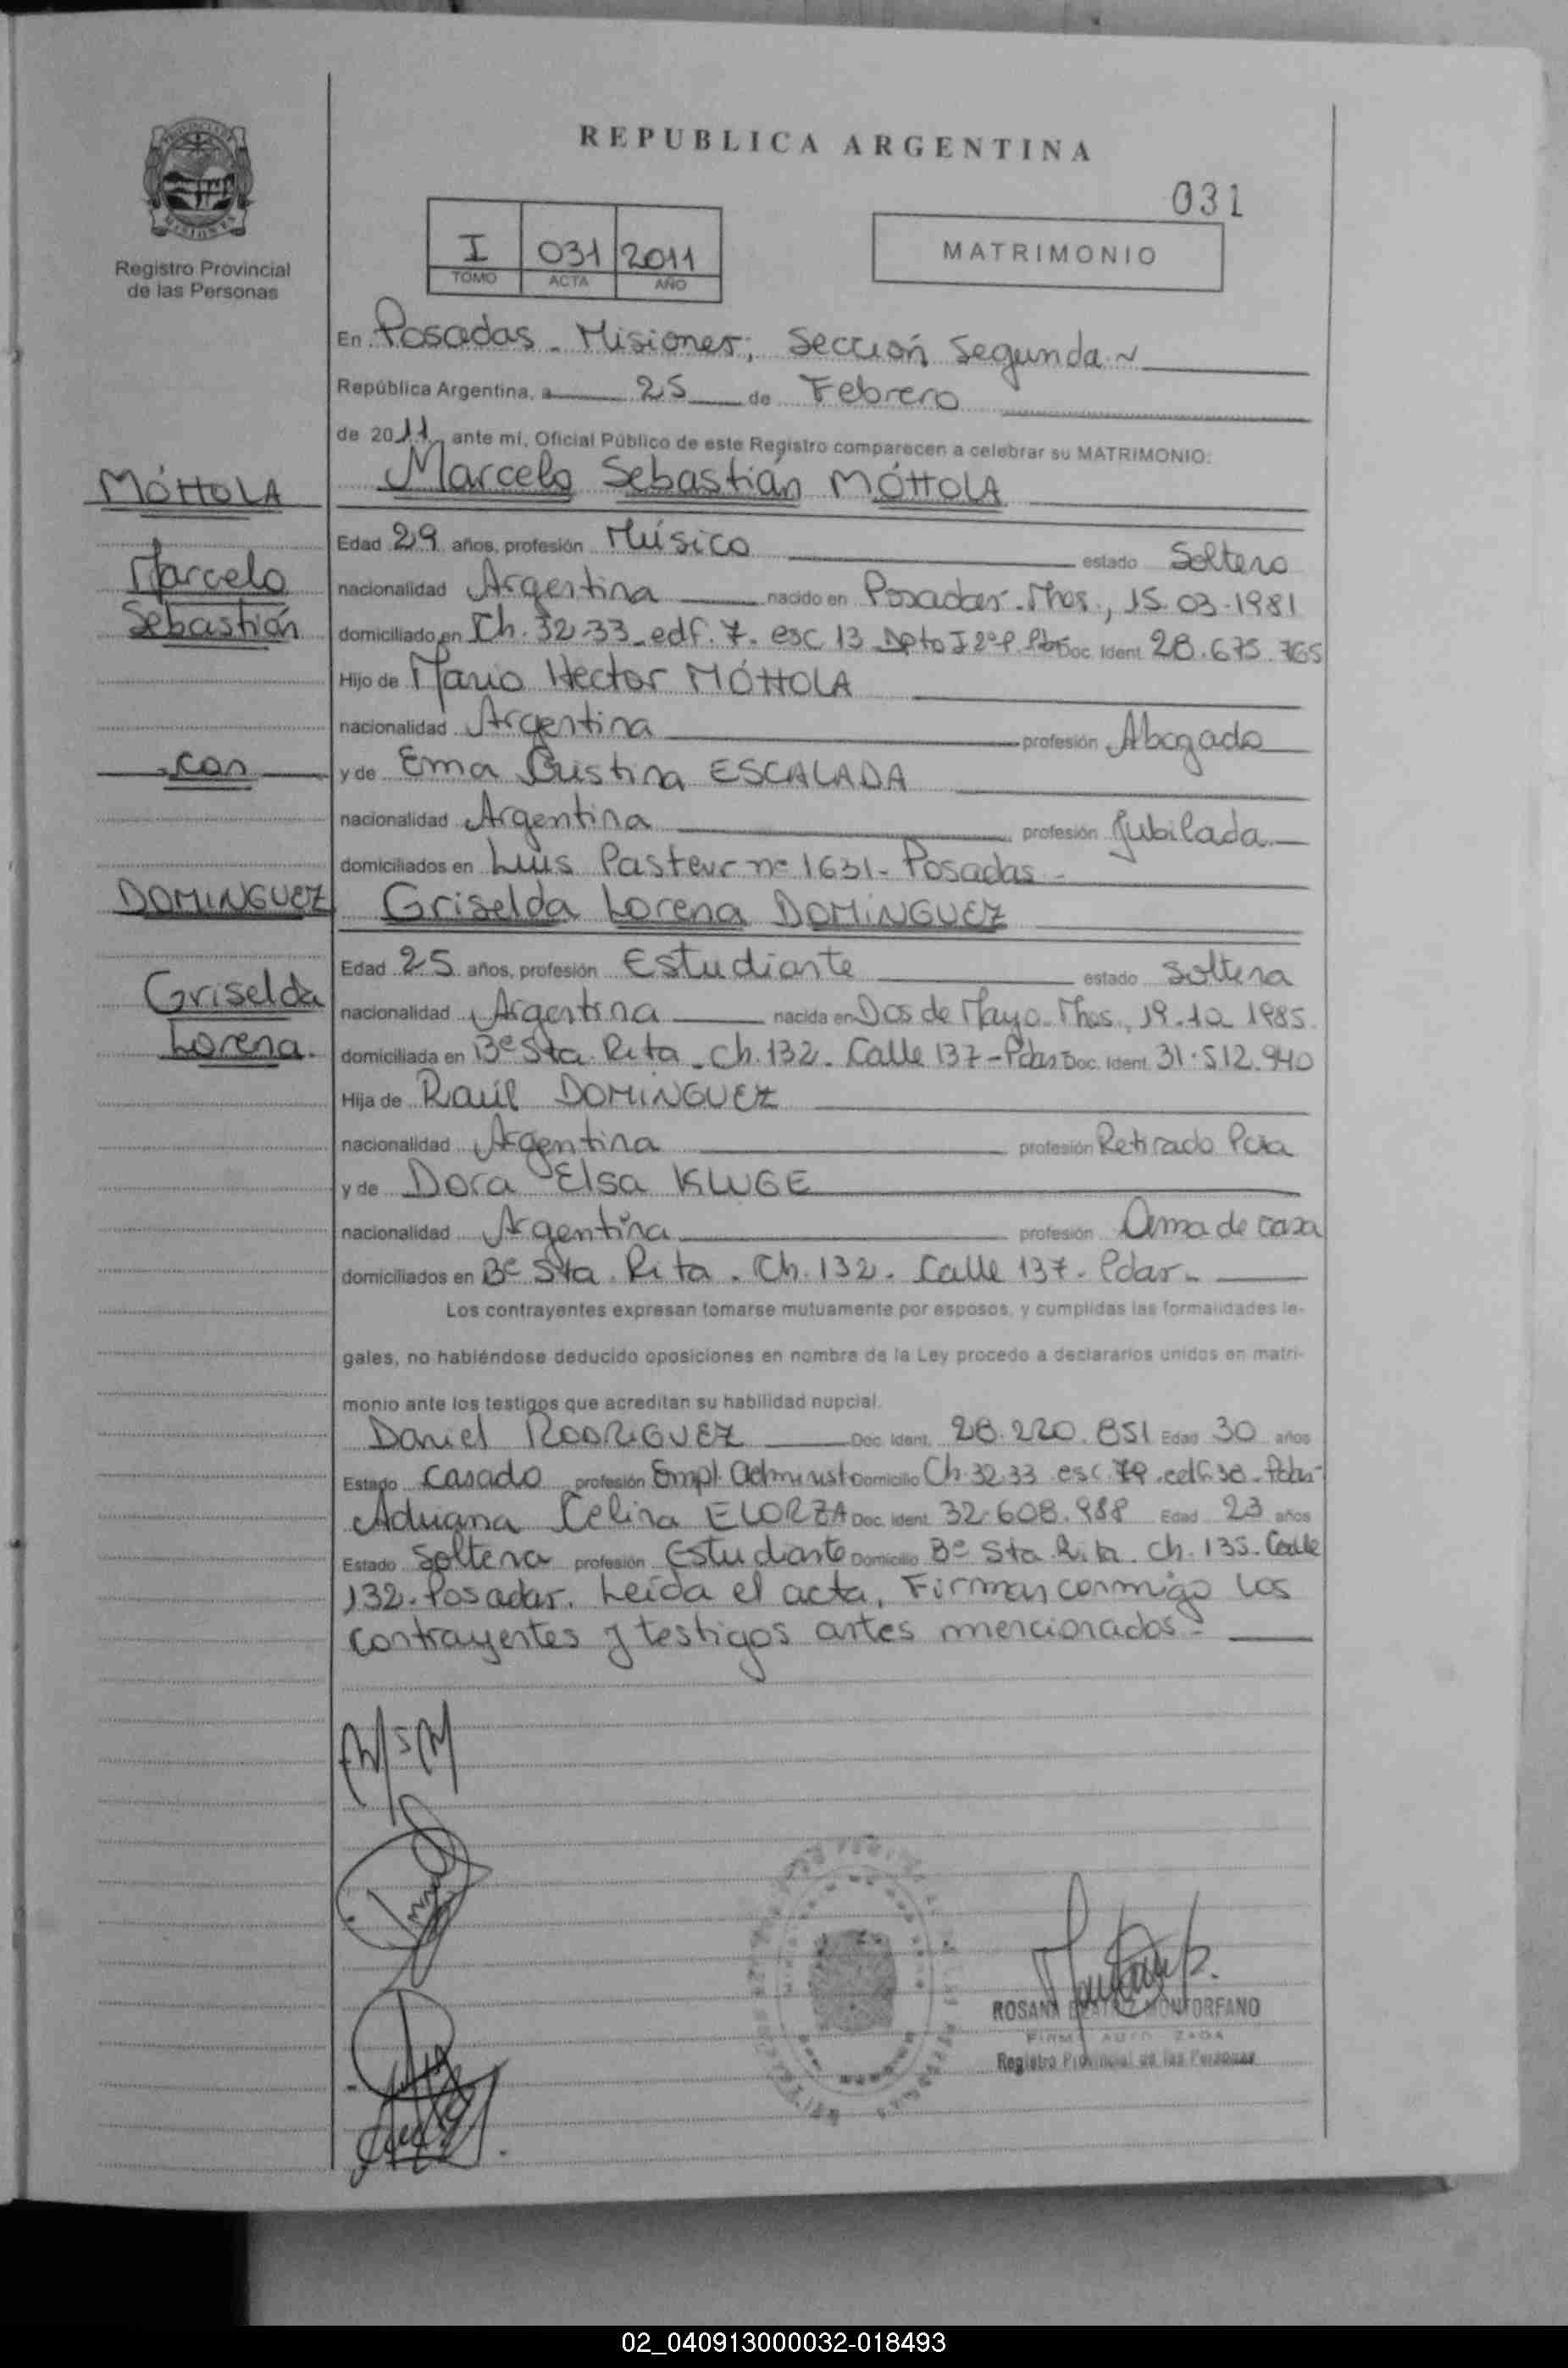 REPUBLICA ARGENTINA
031
Registro Provincial
de las Personas
I 031 2011
TOMO ACTA AÑO
MATRIMONIO
En Posadas - Misiones; Sección Segunda ~
República Argentina, a 25 de Febrero
de 2011 ante mí, Oficial Público de este Registro comparecen a celebrar su MATRIMONIO:
MÓTTOLA
Marcelo Sebastián MÓTTOLA
Edad 29 años, profesión Músico estado Soltero
Marcelo
nacionalidad Argentina nacido en Posadas-Mnes, 15-03-1981
Sebastián
domiciliado en Ch. 32-33 edf. 7. esc 13 Dpto I 2º P. Doc. Ident. 28.675.765
Hijo de Mario Hector MÓTTOLA
nacionalidad Argentina profesión Abogado
-con-
y de Ema Cristina ESCALADA
nacionalidad Argentina profesión Jubilada
domiciliados en Luis Pasteur nº 1631- Posadas-
DOMINGUEZ
Griselda Lorena DOMINGUEZ
Edad 25 años, profesión Estudiante estado Soltera
Griselda
nacionalidad Argentina nacida en Dos de Mayo-Mnes, 19-10-1985
Lorena.
domiciliada en Bº Sta. Rita - Ch. 132 - Calle 137 - Pdas Doc. Ident. 31.512.940
Hija de Raúl DOMINGUEZ
nacionalidad Argentina profesión Retirado Pcia
y de Dora Elsa KLUGE
nacionalidad Argentina profesión Ama de casa
domiciliados en Bº Sta. Rita - Ch. 132 - Calle 137 - Pdas-
Los contrayentes expresan tomarse mutuamente por esposos, y cumplidas las formalidades le-
gales, no habiéndose deducido oposiciones en nombre de la Ley procedo a declararlos unidos en matri-
monio ante los testigos que acreditan su habilidad nupcial.
Daniel RODRIGUEZ Doc. Ident. 28.220.851 Edad 30 años
Estado Casado profesión Empl. Administ Domicilio Ch. 32.33 esc. 79 edf. 38 - Pdas-
Adriana Celina ELORZA Doc. Ident. 32.608.988 Edad 23 años
Estado Soltera profesión Estudiante Domicilio Bº Sta. Rita. Ch. 135. Calle
132-Posadas. Leída el acta, Firman conmigo los
contrayentes y testigos antes mencionados-
ROSANA BEATRIZ MONTORFANO
FIRMA AUTORIZADA
Registro Provincial de las Personas
02_040913000032-018493